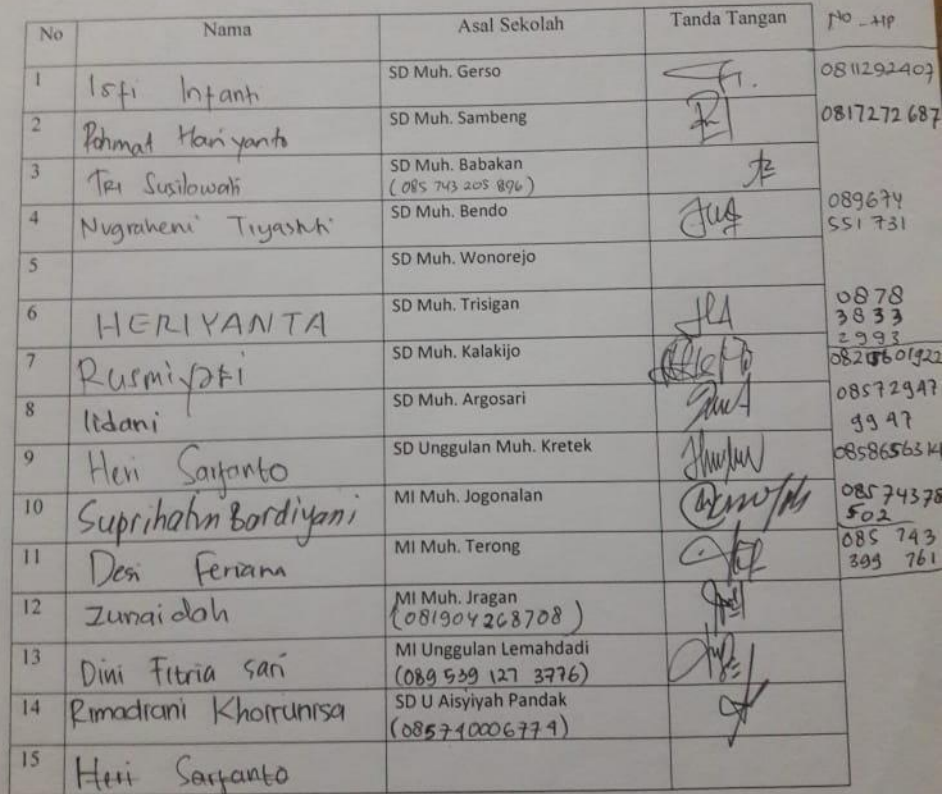 No Nama Asal Sekolah Tanda Tangan No_HP
1 Isfi Intanti SD Muh. Gerso 0811292407
2 Rohmat Hariyanto SD Muh. Sambeng 0817272687
3 Tri Susilowati SD Muh. Babakan
(085 743 205 896)
4 Nugraheni Tiyastuti SD Muh. Bendo 089674
551 731
5 SD Muh. Wonorejo
6 HERIYANTA SD Muh. Trisigan 0878
3833
2993
7 Rusmiyati SD Muh. Kalakijo
8 Iidani SD Muh. Argosari 08572947
9947
9 Heri Saryanto SD Unggulan Muh. Kretek
10 Suprihatin Bardiyani MI Muh. Jogonalan 085 74378
502
11 Desi Feriana MI Muh. Terong 085 743
399 761
12 Zunaidah MI Muh. Jragan
(081904268708)
13 Dini Fitria Sari MI Unggulan Lemahdadi
(089 539 127 3776)
14 Rimadrani Khoirunisa SD U Aisyiyah Pandak
(085740006774)
15 Heri Saryanto